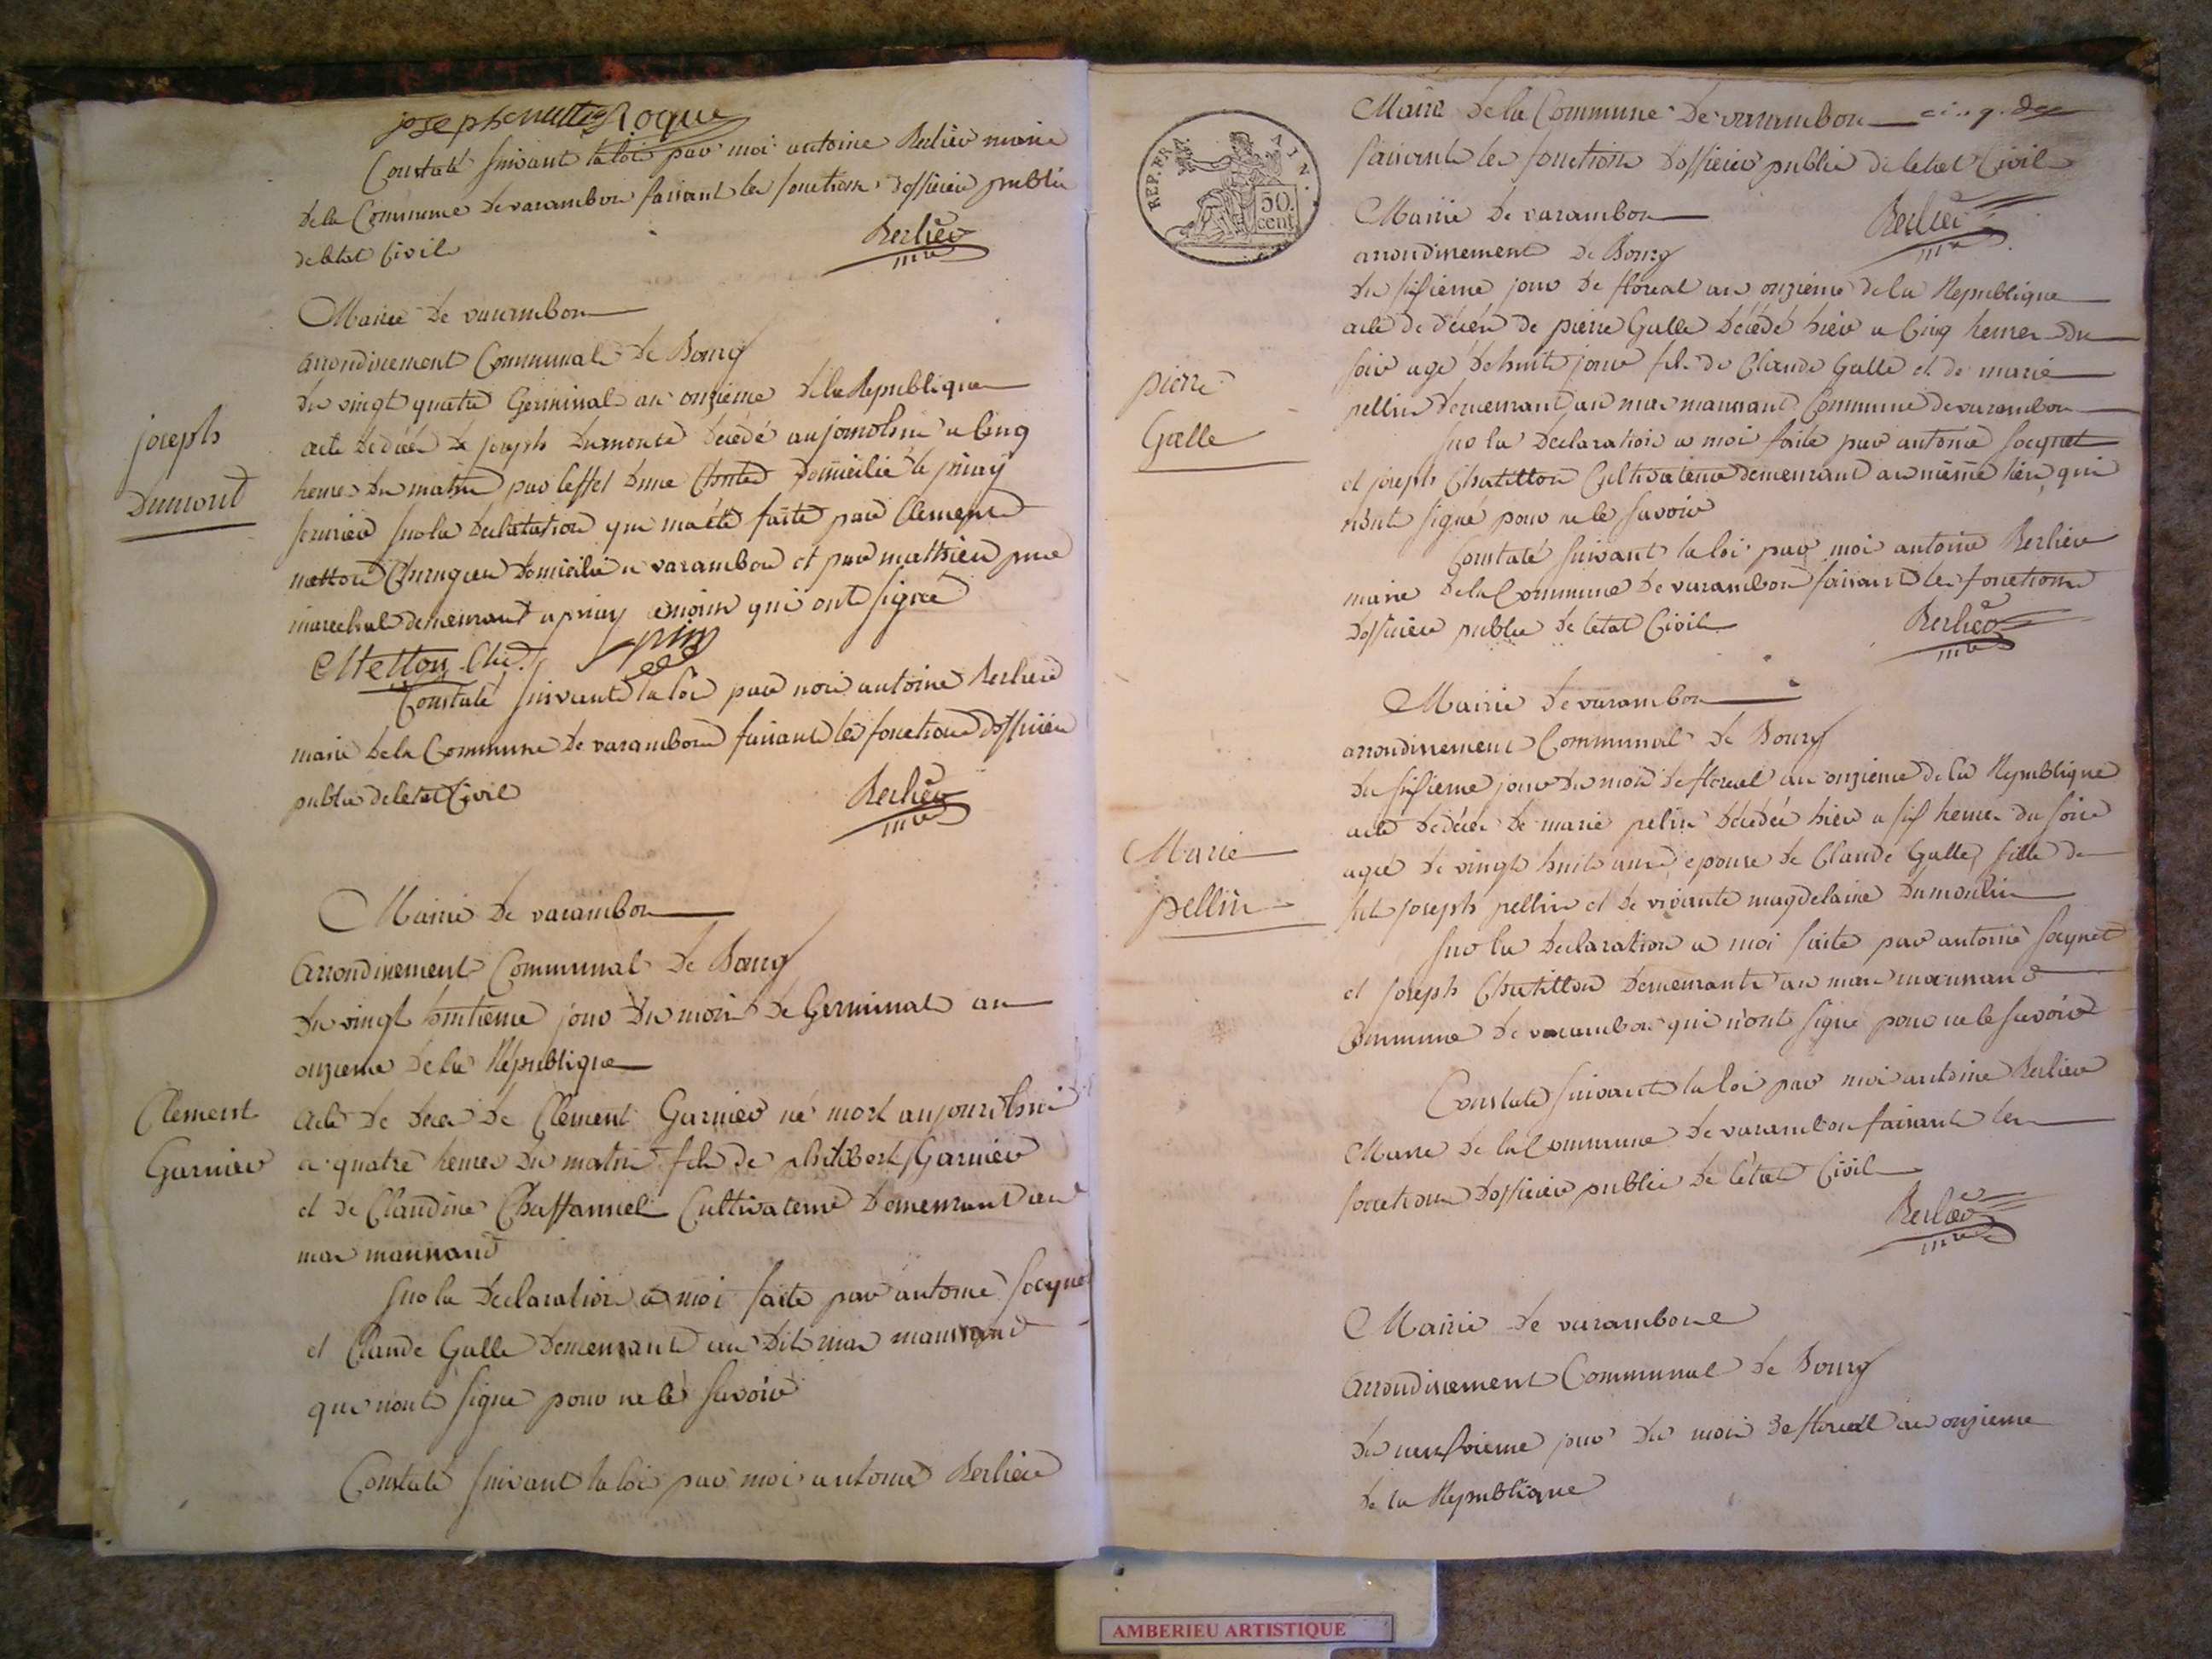 Constaté suivant la loi par moi antoine Berlier maire
de la Commune de varambon faisant les fonctions d'officier public
de letat Civil
Berlier
mre
Mairie de varambon
arrondissement Communal de Bourg
du vingt quatre Germinal an onzieme de la Republique
joseph
Dumont
acte de décès de joseph dumont décédé aujourdhui a Cinq
heures du matin par leffet dune Chute domicilié a priay
sur la declaration qui ma été faite par Clement
metton Chirurgien domicilié a varambon et par mathieu
marechal demeurant a priay qui ont signé
Metton Chir.
Constaté suivant la loi par moi antoine Berlier
maire de la Commune de varambon faisant les fonctions dofficier
public de letat Civil
Berlier
mre
Mairie de varambon
arrondissement Communal de Bourg
du vingt huitieme jour du mois de Germinal an
onzieme de la Republique
Clement
Garnier
acte de deces de Clement Garnier né mort aujourdhui
a quatre heures du matin fils de philibert Garnier
et de Claudine Chaffannel Cultivateurs demeurant au
mas maunand
sur la declaration a moi faite par antoine Socquet
et Claude Galle demeurant au dit mas maunand
qui n'ont signé pour ne le savoir
Constaté suivant la loi par moi antoine Berlier
REP. FRA.
AIN.
50.
cent
Maire de la Commune de varambon
faisant les fonctions dofficier public de letat Civil
Berlier
mre
Mairie de varambon
arrondissement de Bourg
du sixieme jour de floreal an onzieme de la Republique
acte de décès de pierre Galle décédé hier a Cinq heures du
soir agé de huit jours fils de Claude Galle et de marie
pierre
Galle
pellin demeurant au mas maunand Commune de varambon
sur la declaration a moi faite par antoine Socquet
et joseph Chatillon Cultivateurs demeurant au même lieu qui
n'ont signé pour ne le savoir
Constaté suivant la loi par moi antoine Berlier
maire de la Commune de varambon faisant les fonctions
dofficier public de letat Civil
Berlier
mre
Mairie de varambon
arrondissement Communal de Bourg
du sixieme jour du mois de floreal an onzieme de la Republique
acte de décès de marie pelin décédée hier a six heures du soir
Marie
pellin
agée de vingt huit ans epouse de Claude Galle, fille de
feu joseph pellin et de vivante magdelaine dumoulin
sur la declaration a moi faite par antoine Socquet
et joseph Chatillon demeurants au mas maunand
Commune de varambon qui n'ont signé pour ne le savoir
Constaté suivant la loi par moi antoine Berlier
Maire de la Commune de varambon faisant les
fonctions dofficier public de l'état Civil
Berlier
mre
Mairie de varambon
arrondissement Communal de Bourg
du neufvieme jour du mois de floreal an onzieme
de la Republique
AMBERIEU ARTISTIQUE